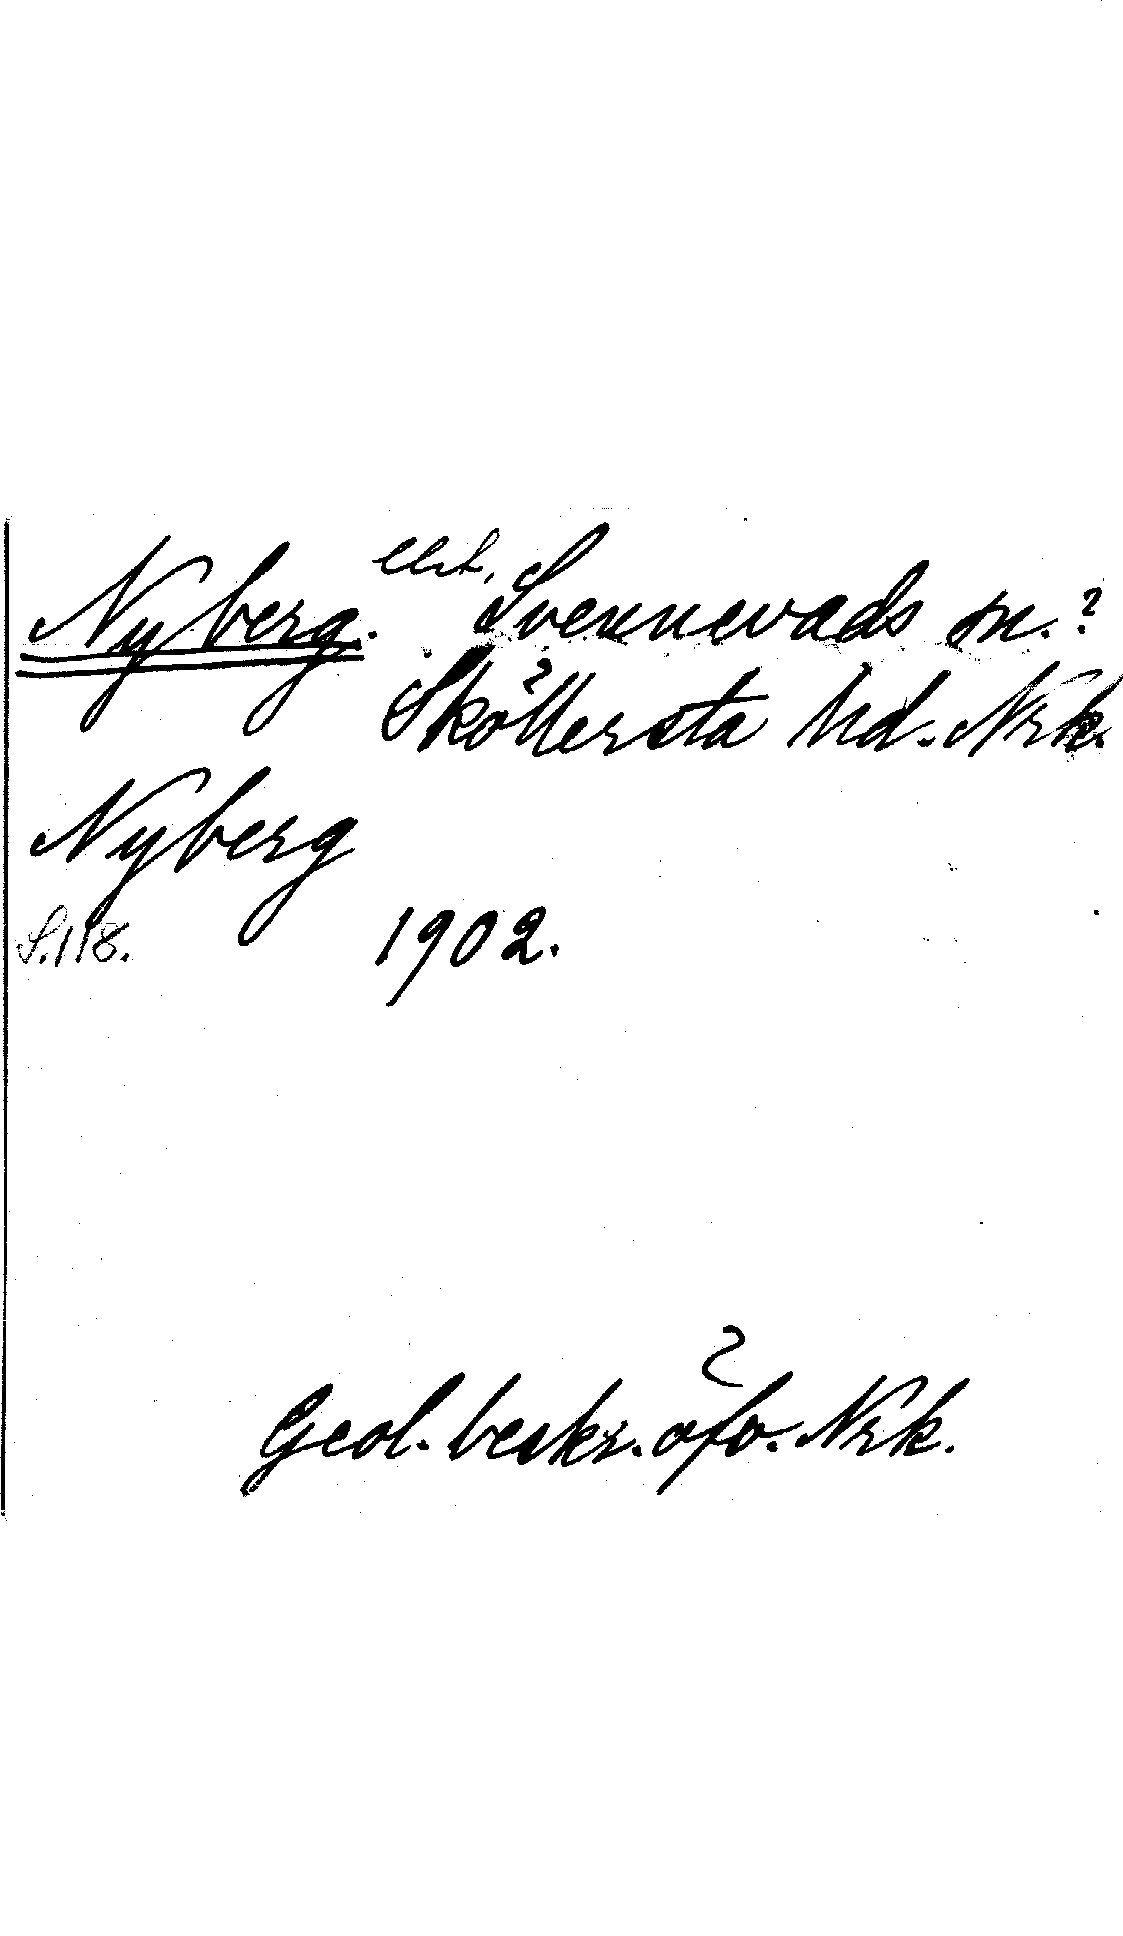 Nyberg. Svennevads sn.?
Sköllersta hd. Nrk.
Nyberg
S.118. 1902.
Geol. beskr. öfv. Nrk.